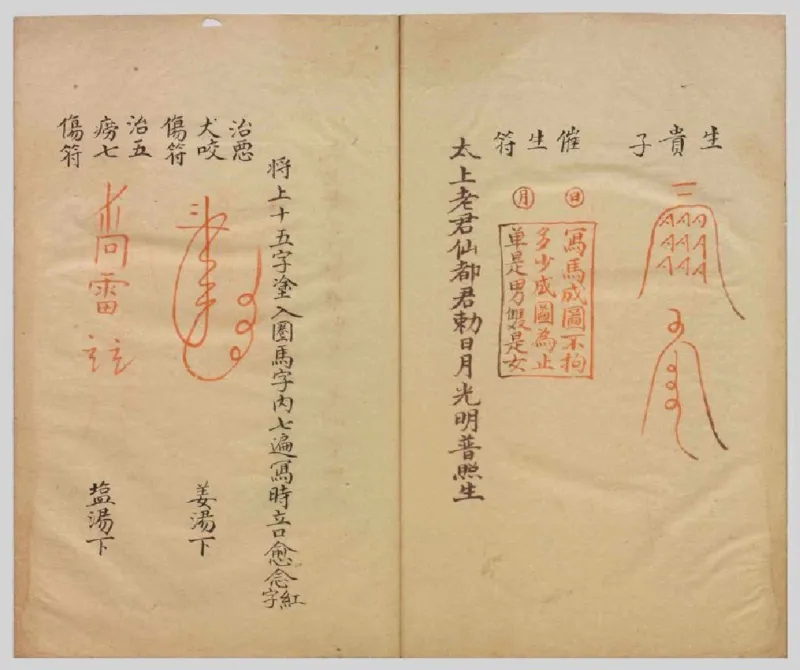 生貴子
催生符
日
月
冩馬成圖不拘
多少成圖為止
单是男雙是女
太上老君仙都君勅日月光明普照生
将上十五字塗入圈馬字内七遍冩時立口愈念紅字
治悪
犬咬
傷符
姜湯下
治五
癆七
傷符
雷
塩湯下